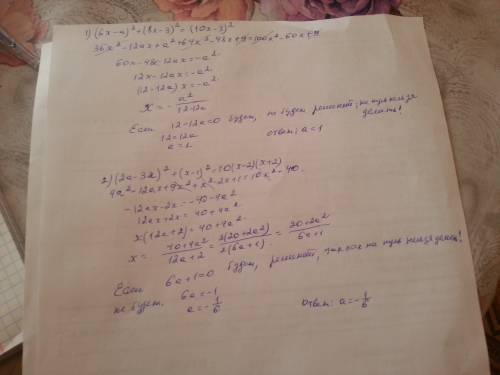 1) (6x-a)²+(8x-3)²=(10x-3)²
36x²-12ax+a²+64x²-48x+9=100x²-60x+9
60x-48x-12ax=-a²
12x-12ax=-a²
(12-12a)x=-a²
x=-a²/12-12a
Если 12-12a=0 будет, то будет решений, на нуль нельзя делить!
12=12a
a=1 ответ: a=1
2) (2a-3x)²+(x-1)²=10(x-2)(x+2)
4a²-12ax+9x²+x²-2x+1=10x²-40
-12ax-2x=-40-4a²
12ax+2x=40+4a²
x(12a+2)=40+4a²
x=40+4a²/12a+2=2(20+2a²)/2(6a+1)=20+2a²/6a+1
Если 6a+1=0 будет, решений, так как на нуль нельзя делить!
не будет. 6a=-1
a=-1/6 ответ: a=-1/6